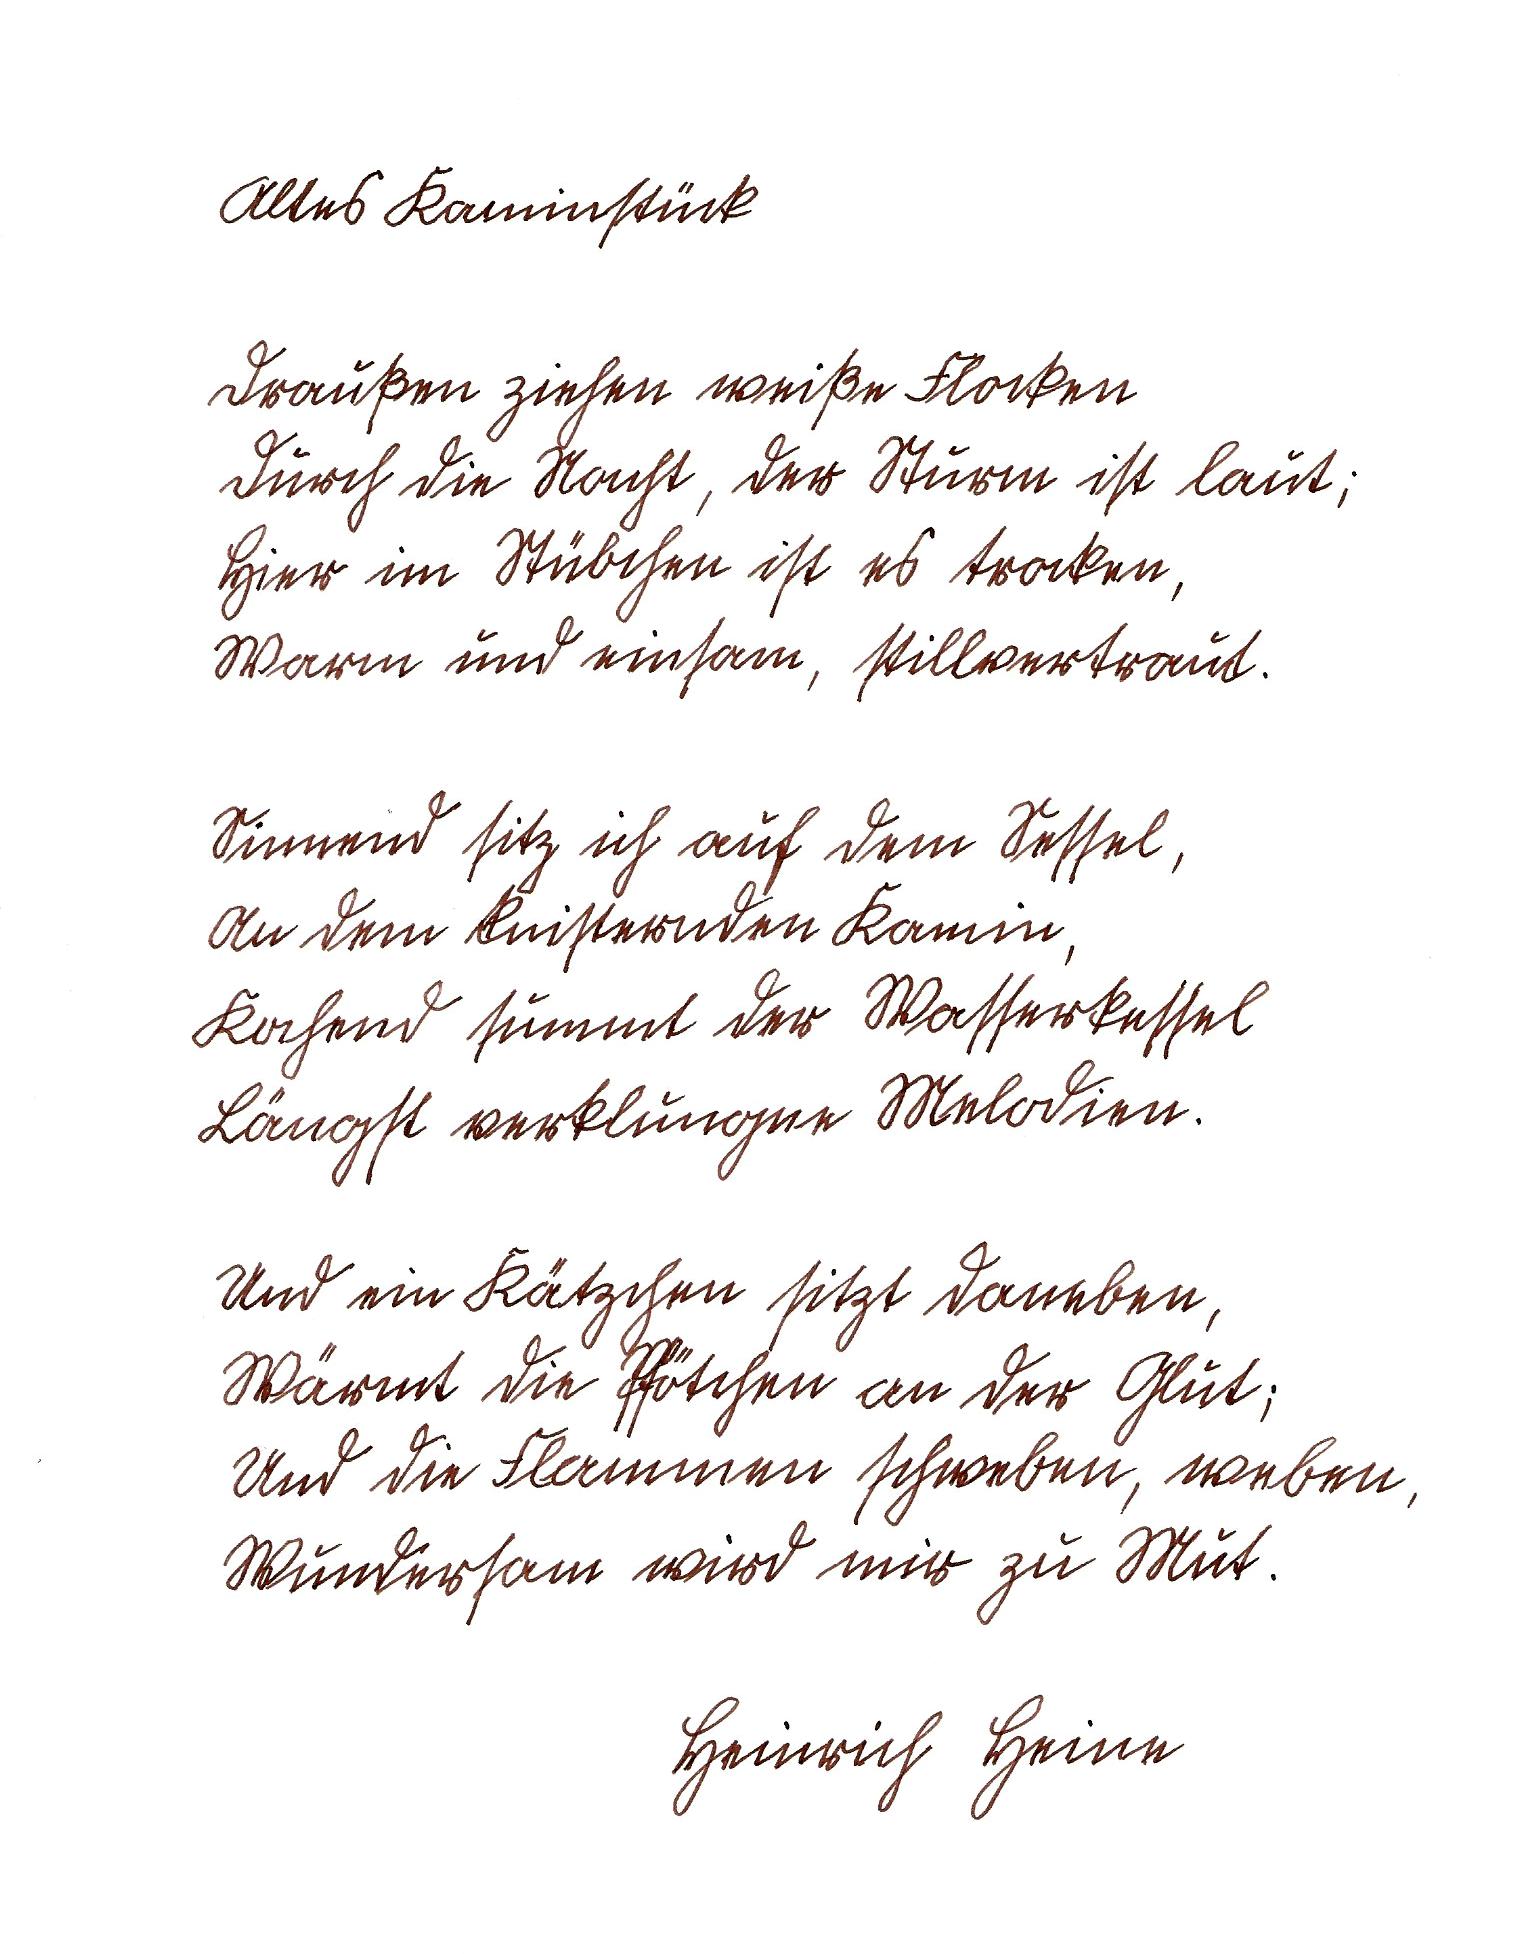 Altes Kaminstück
Draußen ziehen weiße Flocken
Durch die Nacht, der Sturm ist laut;
Hier im Stübchen ist es trocken,
Warm und einsam, stillvertraut.
Sinnend sitz ich auf dem Sessel,
An dem knisternden Kamin,
Kochend summt der Wasserkessel
Längst verklungne Melodien.
Und ein Kätzchen sitzt daneben,
Wärmt die Pfötchen an der Glut;
Und die Flammen schweben, weben,
Wundersam wird mir zu Mut.
Heinrich Heine